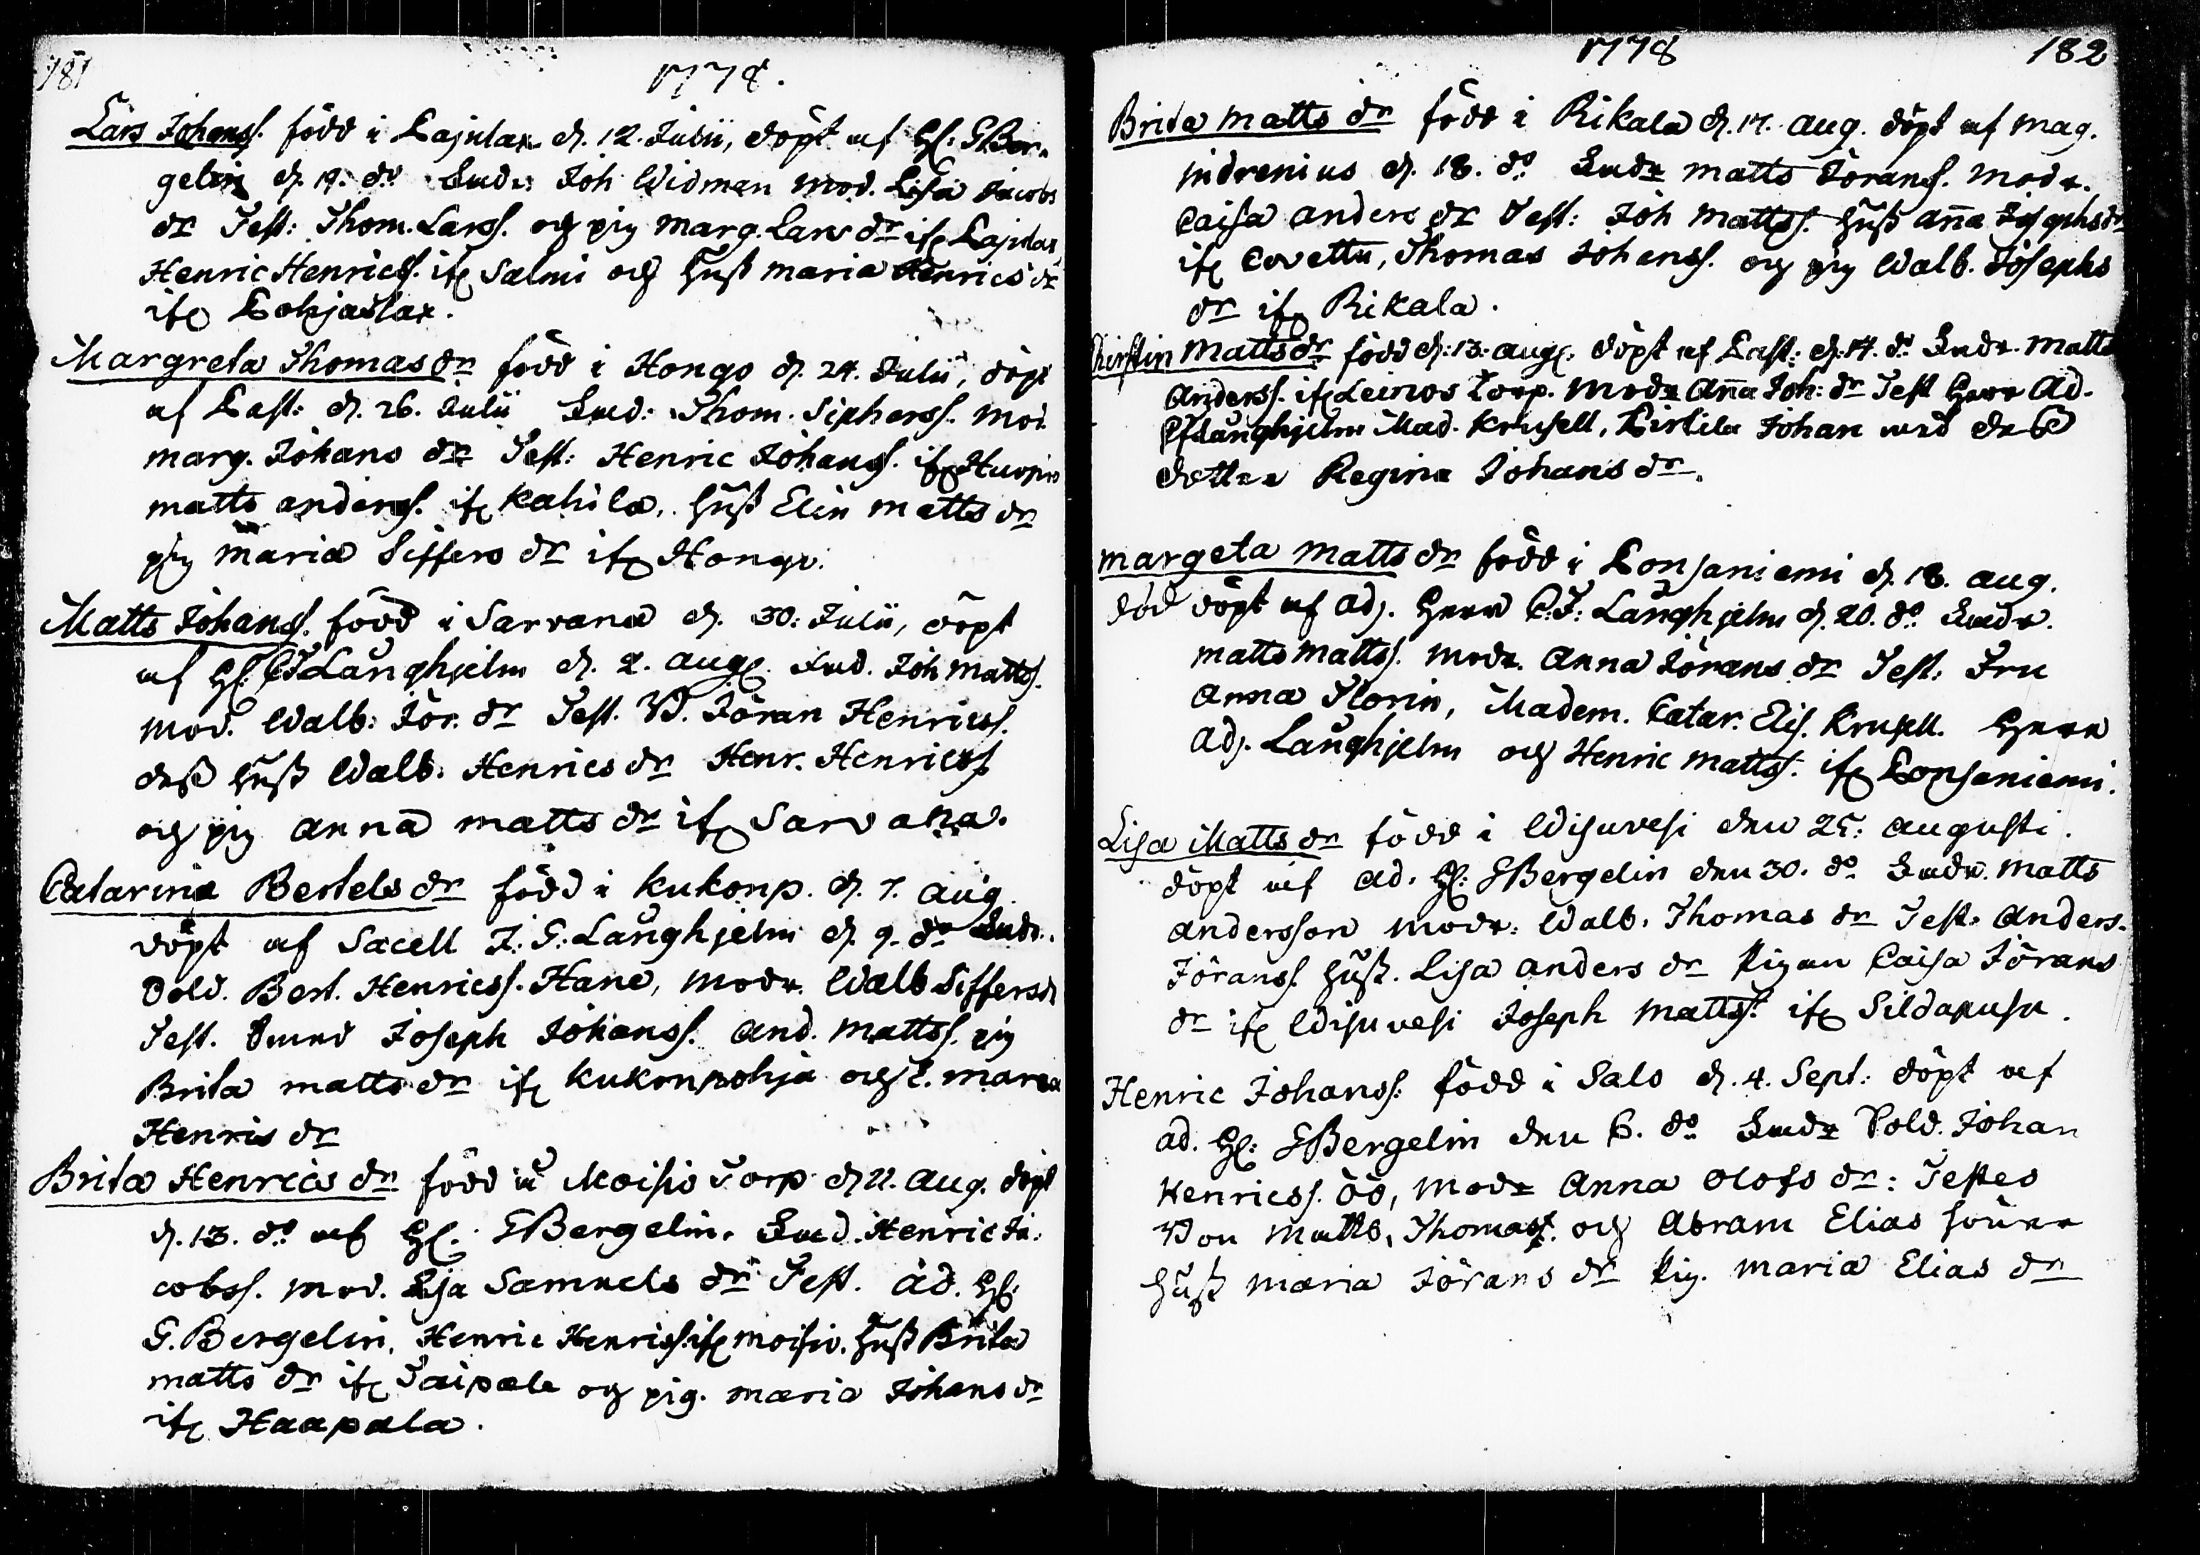 181
1778.
Lars Johanss. född i Kajalax d. 12. Julii, döpt af H: G Ber-
gelin d. 19. do Fadr: Joh Widman mod. Lisa Jacobs
dr Test: Thom. Larss. och pig Marg. Lars dr if Kajalax
Henric Henricss. if Salmi och hust Maria Henrics dr
if Kohjaslax.
Margreta Thomas dr född i Hongo d. 24. Julii, döpt
af Past: d. 26. Julii Fad: Thom. Sipherss. Mod
marg. Johans dr Test: Henric Johanss. if
matts anderss. if Kahila, hust Elin matts dr
pig maria Siffers dr if Hongo.
Matts Johanss. född i Sarvana d. 30: Julii, döpt
af H: CJ Laughjelm d. 2. aug. Fad. Joh Matts.
Mod. Walb: Jör. dr Test. Jöran Henricss.
dess hust Walb. Henrics dr Henr. Henricss
och pig anna matts dr if Sarvana.
Catarina Bertels dr född i Kukonp. d. 7. aug.
döpt af Sacell J. G. Laughjelm d. 9. do Fadr.
Sold. Bert. Henricss. Hane, modr. Walb Siffersdr
Test. Joseph Johanss. And. Mattss. pig
Brita matts dr if Kukonpohja och maria
Henris dr
Brita Henrics dr född i Moisio Torp d 11. Aug. döpt
d. 13. do af H: G Bergelin. Fad. Henric Ja-
cobss. Mod. Lisa Samuels dr Test. Ad. H:
G. Bergelin, Henric Henriss. if moisio. hust Brita
matts dr if Taipale och pig. maria Johans dr
if Haapala.
1778
182
Brita Matts dr född i Rikala d. 17. aug. döpt af Mag.
Indrenius d. 18. do Fadr matts Jöranss. Modr.
Caisa anders dr Test: Joh Mattss. hust Anna Josephsdr
if Covettu, Thomas Johanss. och pig Walb. Josephs
dr if Rikala.
Chirstin Mattsdr född d: 13: aug. döpt af Past: d: 14. do Fadr. Matts
Anderss. if Leinos Torp. Modr Anna Joh: dr Test Herr Ad.
CJ Laughjelm Mad. Krusell, Kirkila Johan
Regina Johans dr.
Margeta Matts dr född i Konsaniemi d. 18. aug.
död döpt af adj. Herr C. J: Laughjelm d. 20. do Fadr.
matts mattss. modr. Anna Jörans dr Test: Fru
Anna Florin, Madem. Catar. Elis. Krusell. Herr
Adj. Laughjelm och Henric mattss. if Konsaniemi.
Lisa Matts dr född i Wisuvesi den 25: augusti.
döpt af Ad. H: G Bergelin den 30. do Fadr. Matts
andersson modr: Walb. Thomas dr Test. Anders.
Jöranss. hust. Lisa anders dr Pigan Caisa Jörans
dr if Wisuvesi Joseph Mattss. if Sildapusu.
Henric Johanss: född i Salo d. 4. Sept: döpt af
ad. H: G Bergelin den 6. do Fadr Sold. Johan
Henricss. Öö, Modr Anna Olofs dr: Testes
Matts, Thomass. och Abram Elias söner
hust maria Jörans dr Pig. maria Elias dr